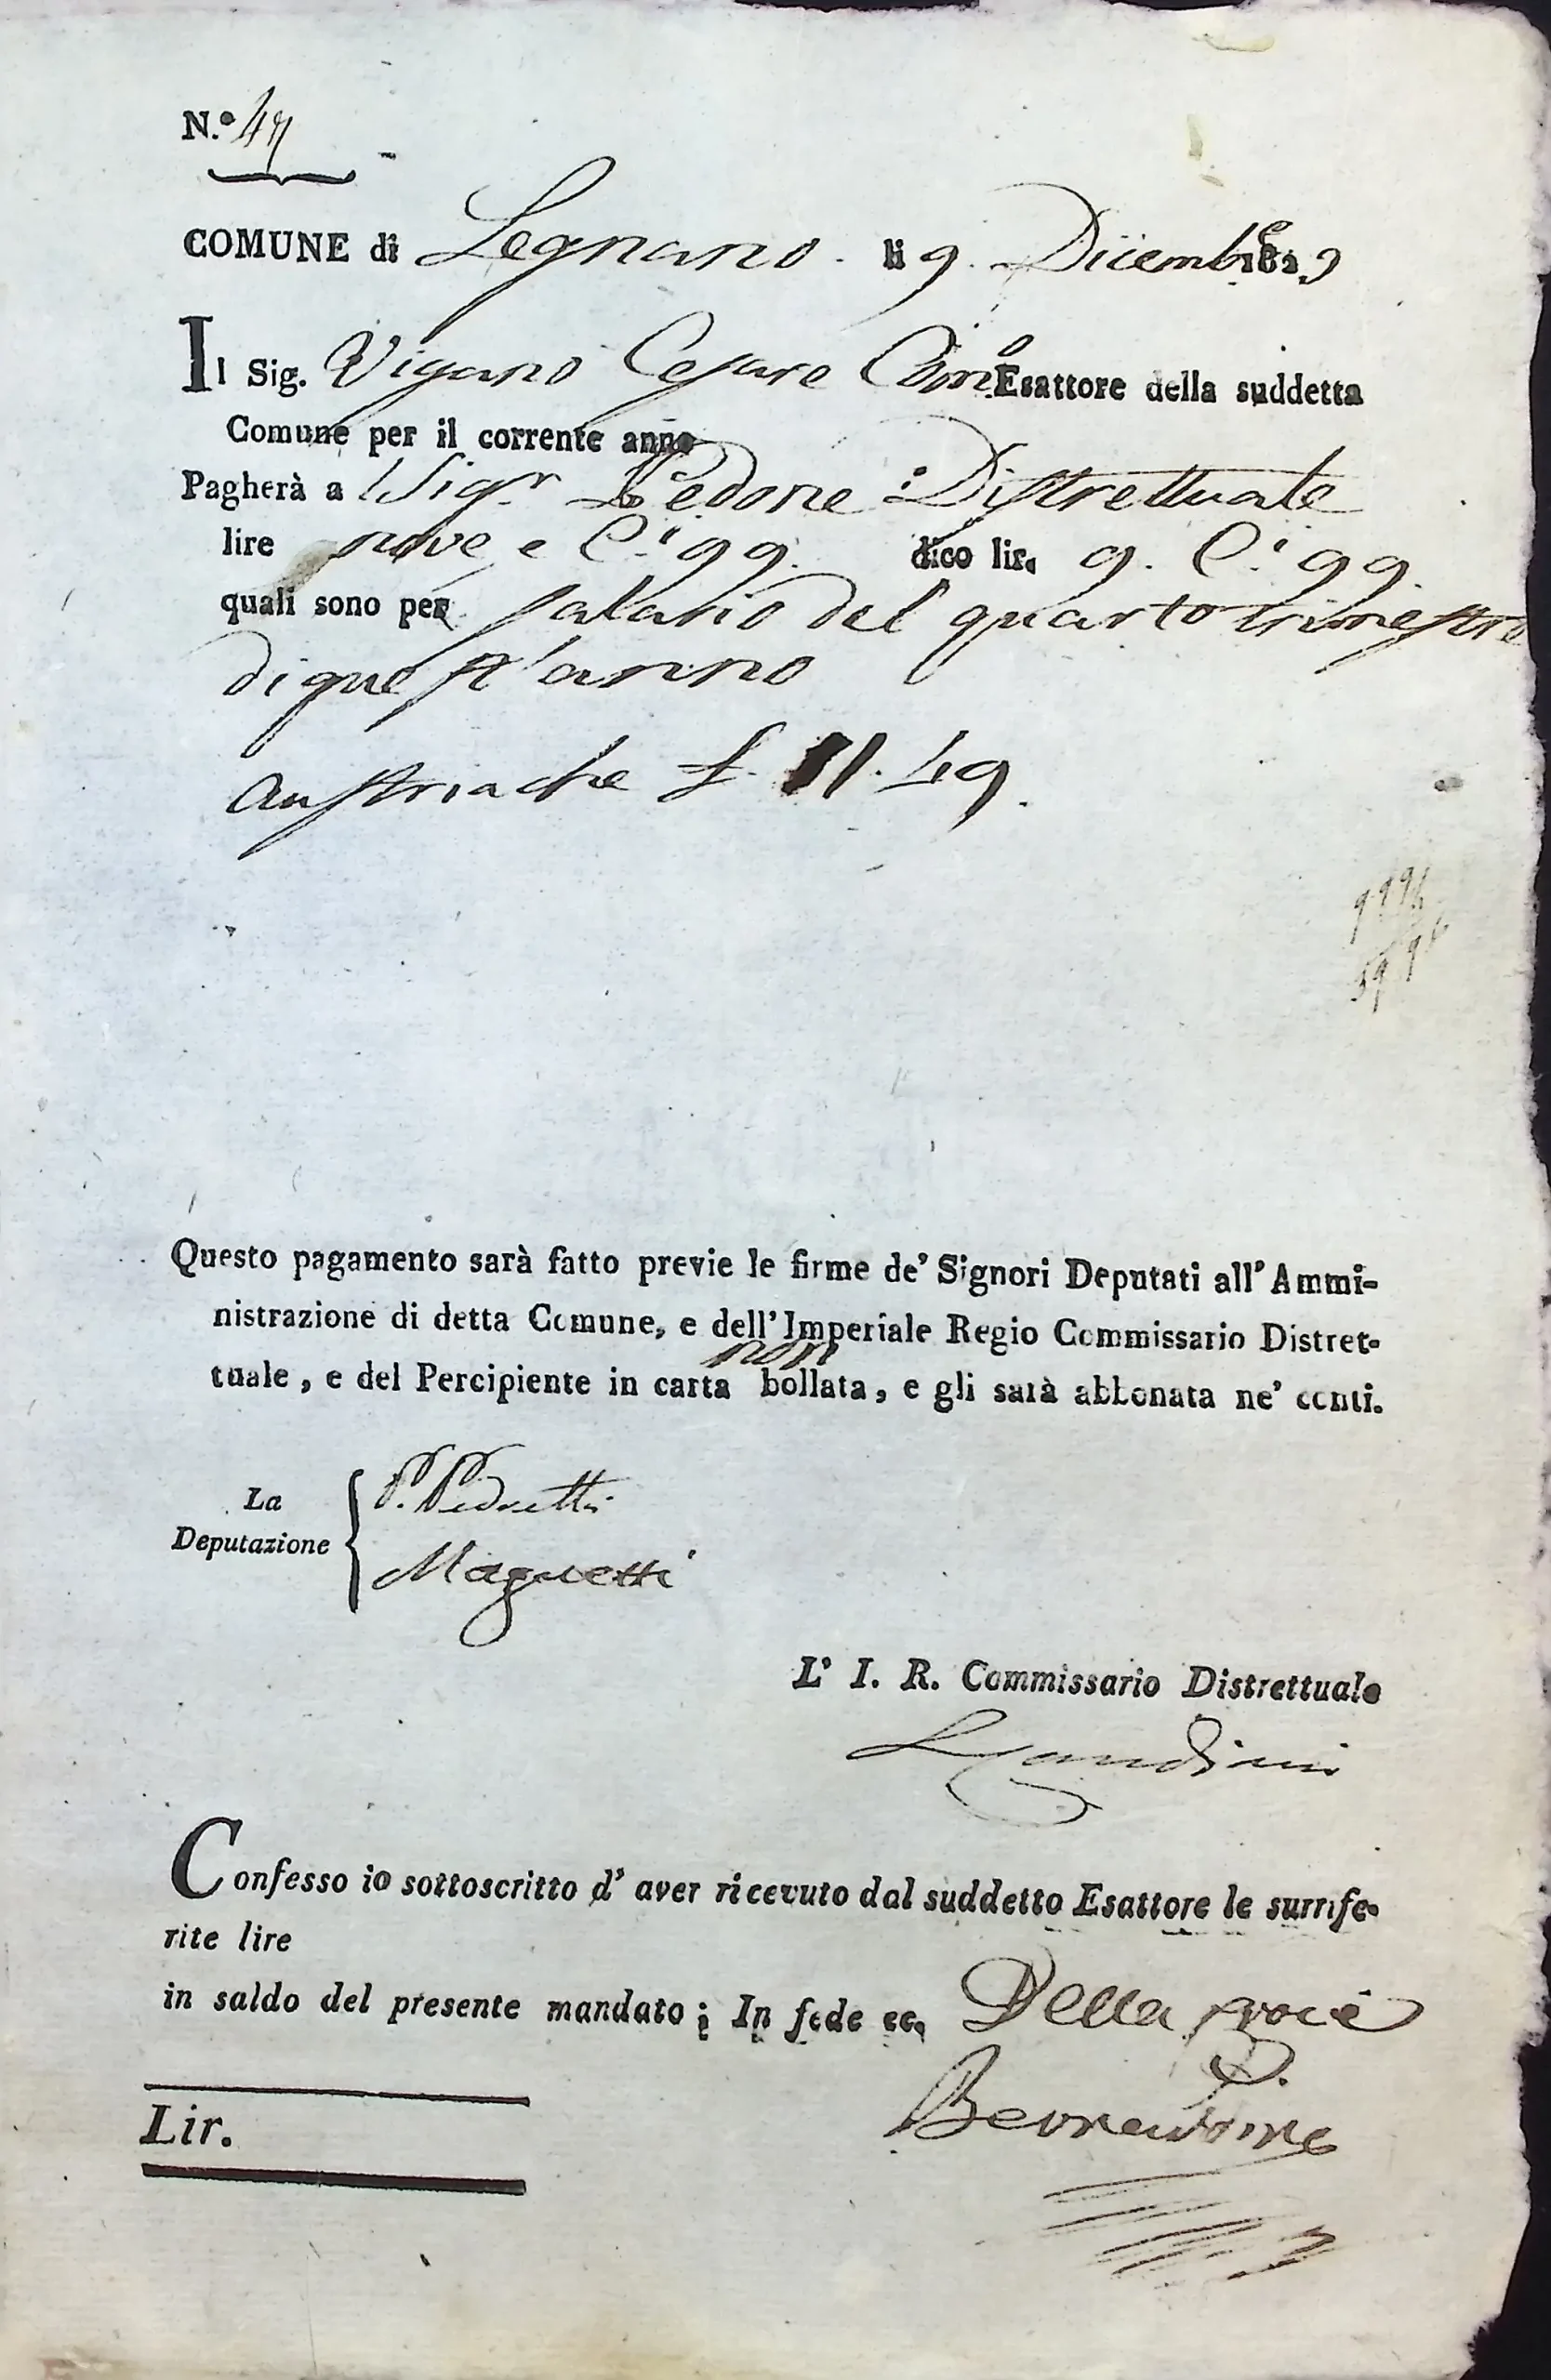 N.º 47
COMUNE di Legnano. li 9. Dicembre 1829
Il Sig. Vigano Cesare Com.º Esattore della suddetta
Comune per il corrente anno
Pagherà a l Sigr. Pedone : Distrettuale
lire nove e C.i 99. dico lir. 9. C.i 99.
quali sono per salario del quarto trimestre
di quest'anno
Austriache £. 11. 49.
Questo pagamento sarà fatto previe le firme de' Signori Deputati all' Ammi-
nistrazione di detta Comune, e dell' Imperiale Regio Commissario Distret-
tuale, e del Percipiente in carta non bollata, e gli sarà abbonata ne' conti.
La Deputazione
P. Pedretti
Magnetti
L' I. R. Commissario Distrettuale
Confesso io sottoscritto d' aver ricevuto dal suddetto Esattore le surrife-
rite lire
in saldo del presente mandato; In fede ec. Della croce
Lir.